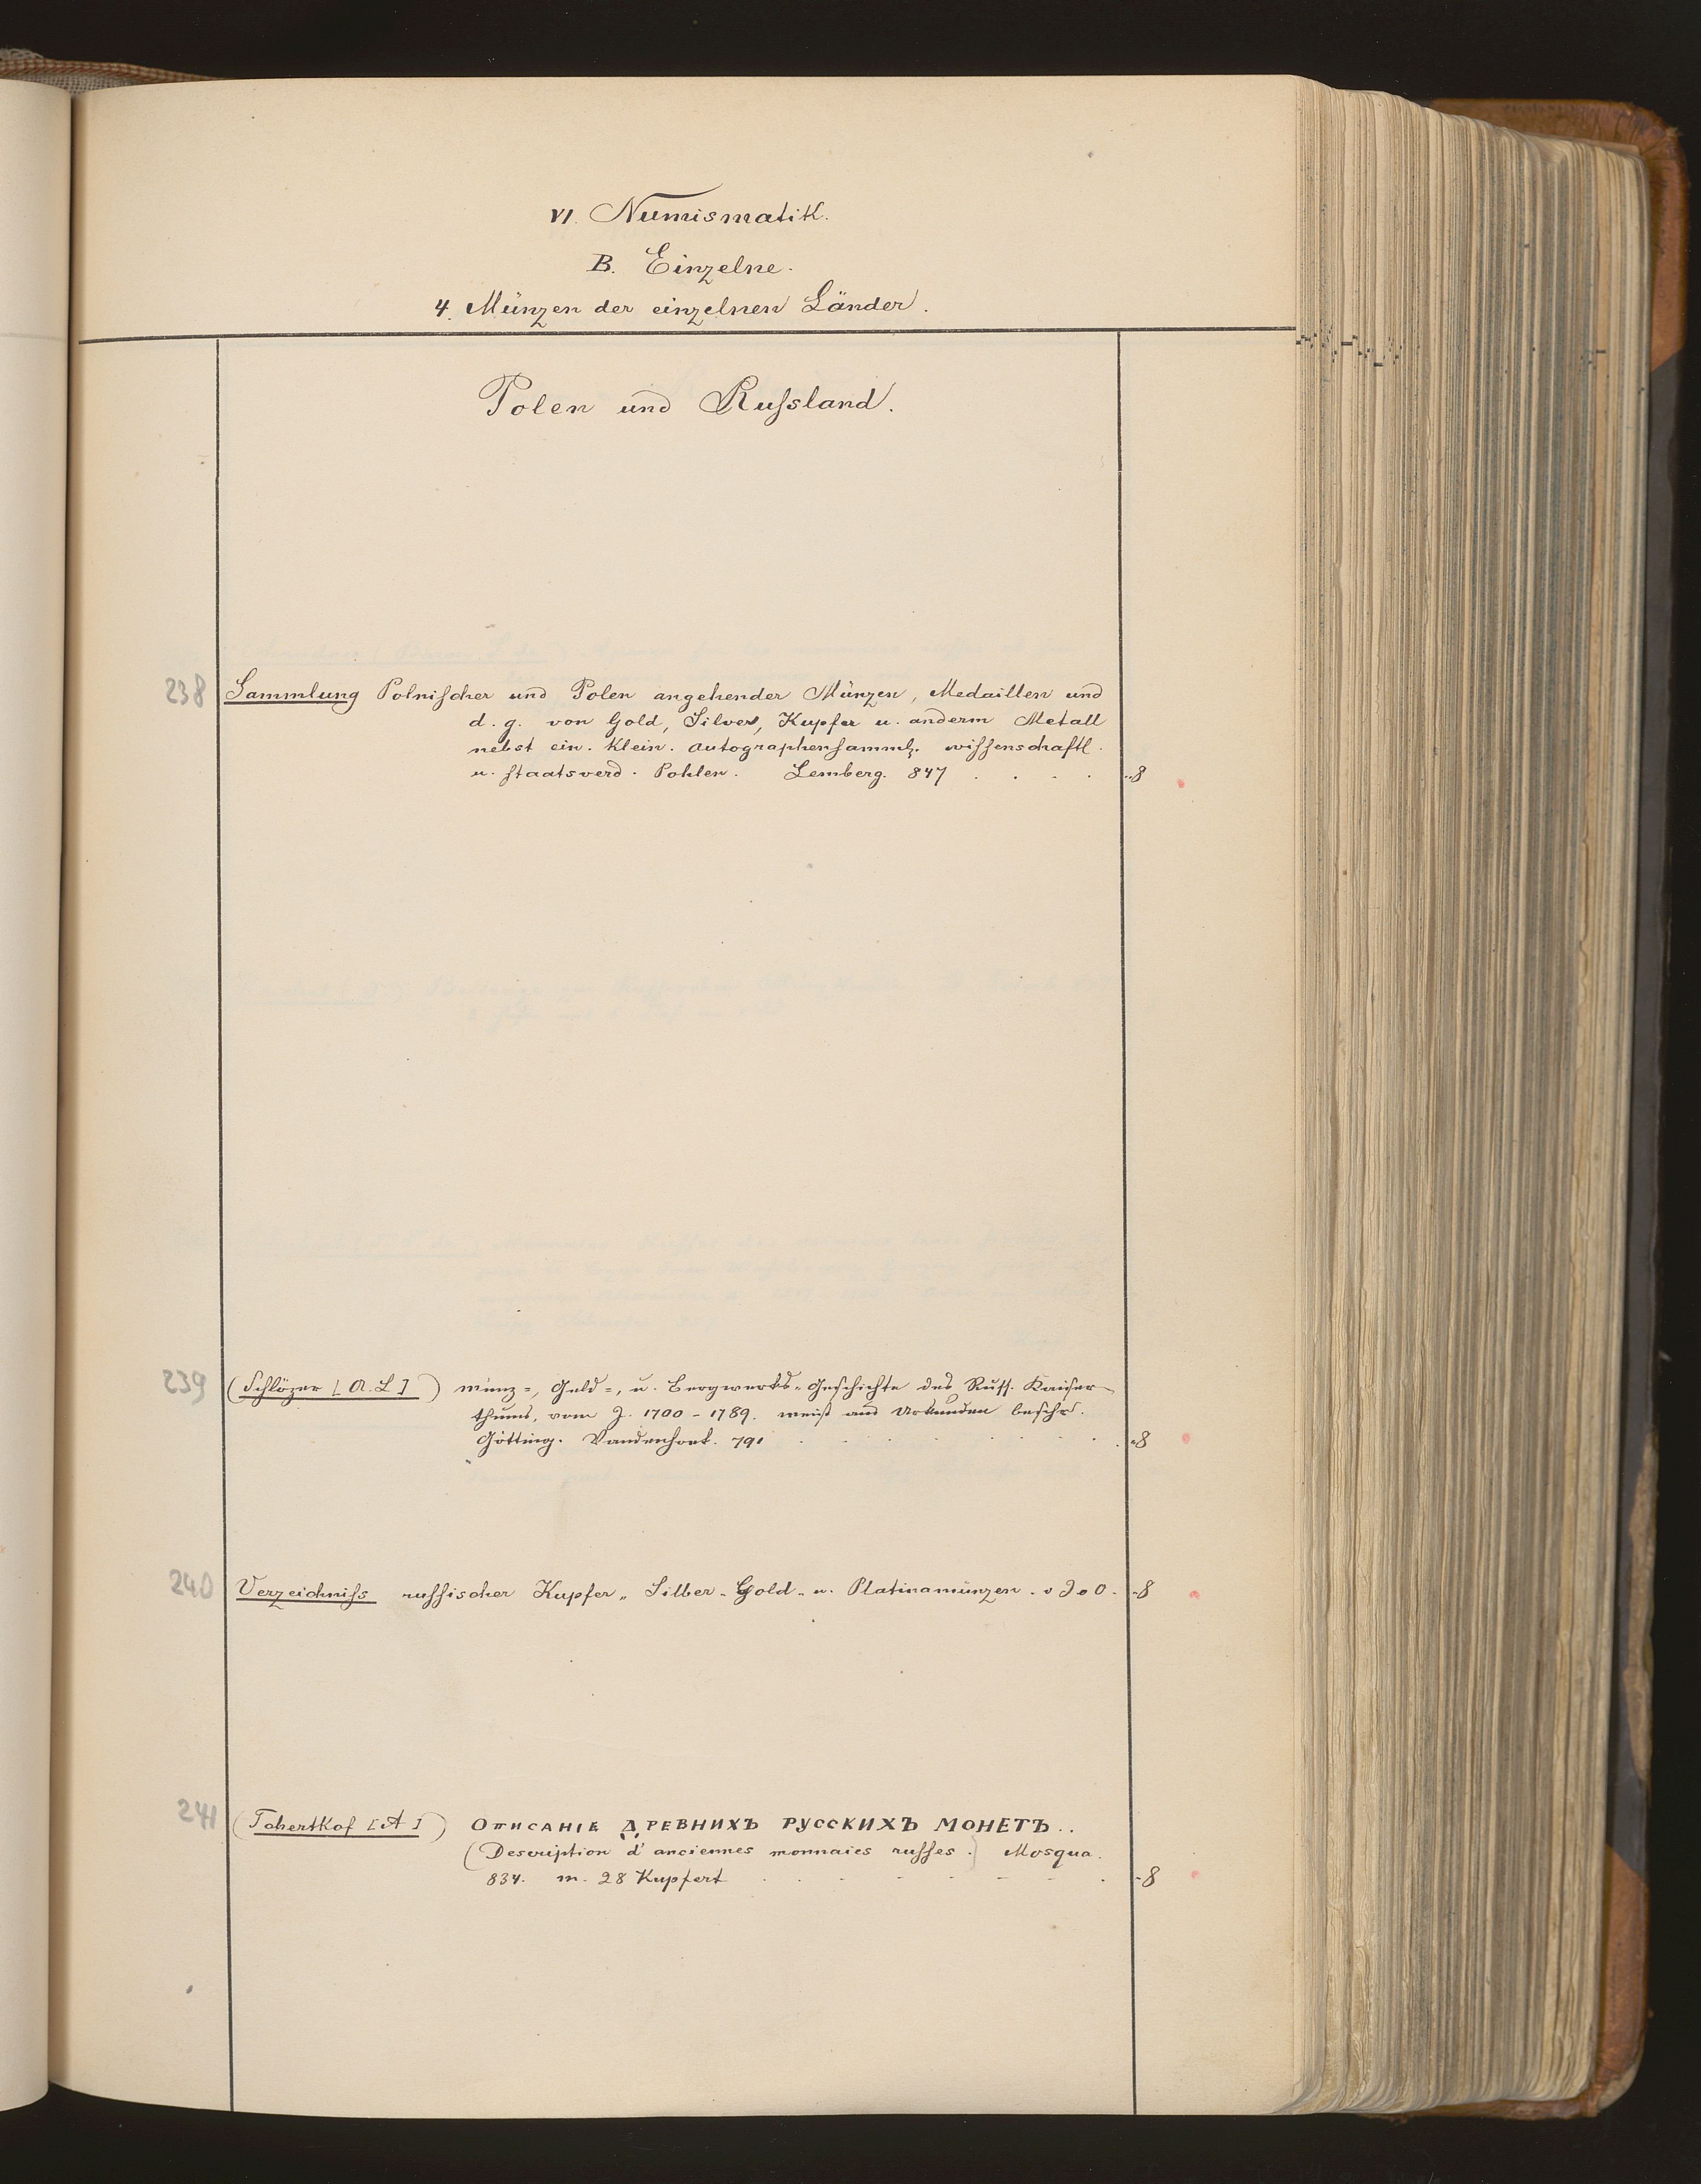 VI. Numismatik.
B. Einzelne.
4. Münzen der einzelnen Länder.
Polen und Russland.
238 Sammlung Polnischer und Polen angehender Münzen, Medaillen und
d. g. von Gold, Silver, Kupfer u. anderm Metall
nebst ein. klein. autographensamml. wissenschaftl.
u. staatsverd. Pohlen. Lemberg. 847 . . . . -8
239 (Schlözer [A. L]) münz=, Geld=, u. Bergwerks-Geschichte des Russ. Kaiser-
thums, vom J. 1700-1789. meist aus Urkunden beschr.
Götting. Vandenhoek. 791 -8
240 Verzeichniss russischer Kupfer- Silber- Gold- u. Platinamünzen. o J o O. -8
241 (Tchertkof [A]) Описаніе древнихъ русскихъ монетъ..
(Description d'anciennes monnaies russes.) Mosqua.
834. m. 28 Kupfert -8